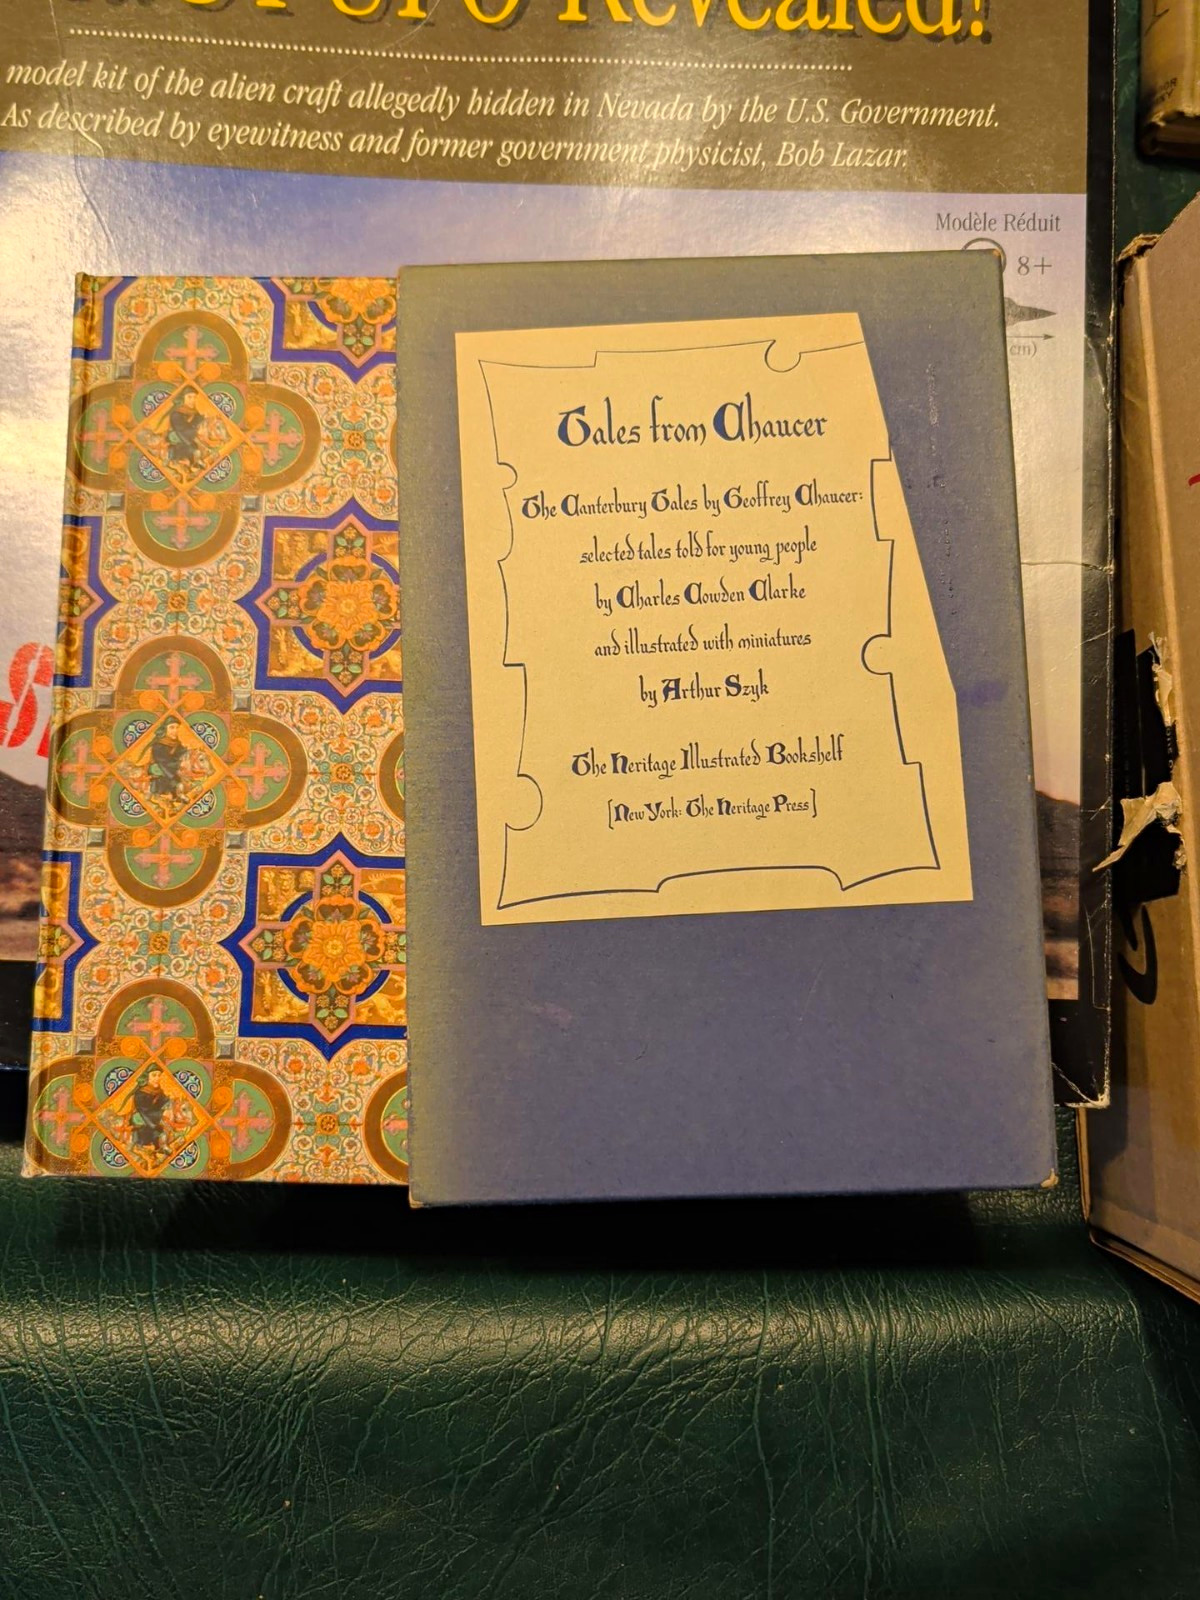 UFO Revealed!
model kit of the alien craft allegedly hidden in Nevada by the U.S. Government.
As described by eyewitness and former government physicist, Bob Lazar.
Modèle Réduit
8+
cm)
Tales from Chaucer
The Canterbury Tales by Geoffrey Chaucer:
selected tales told for young people
by Charles Cowden Clarke
and illustrated with miniatures
by Arthur Szyk
The Heritage Illustrated Bookshelf
[New York: The Heritage Press]